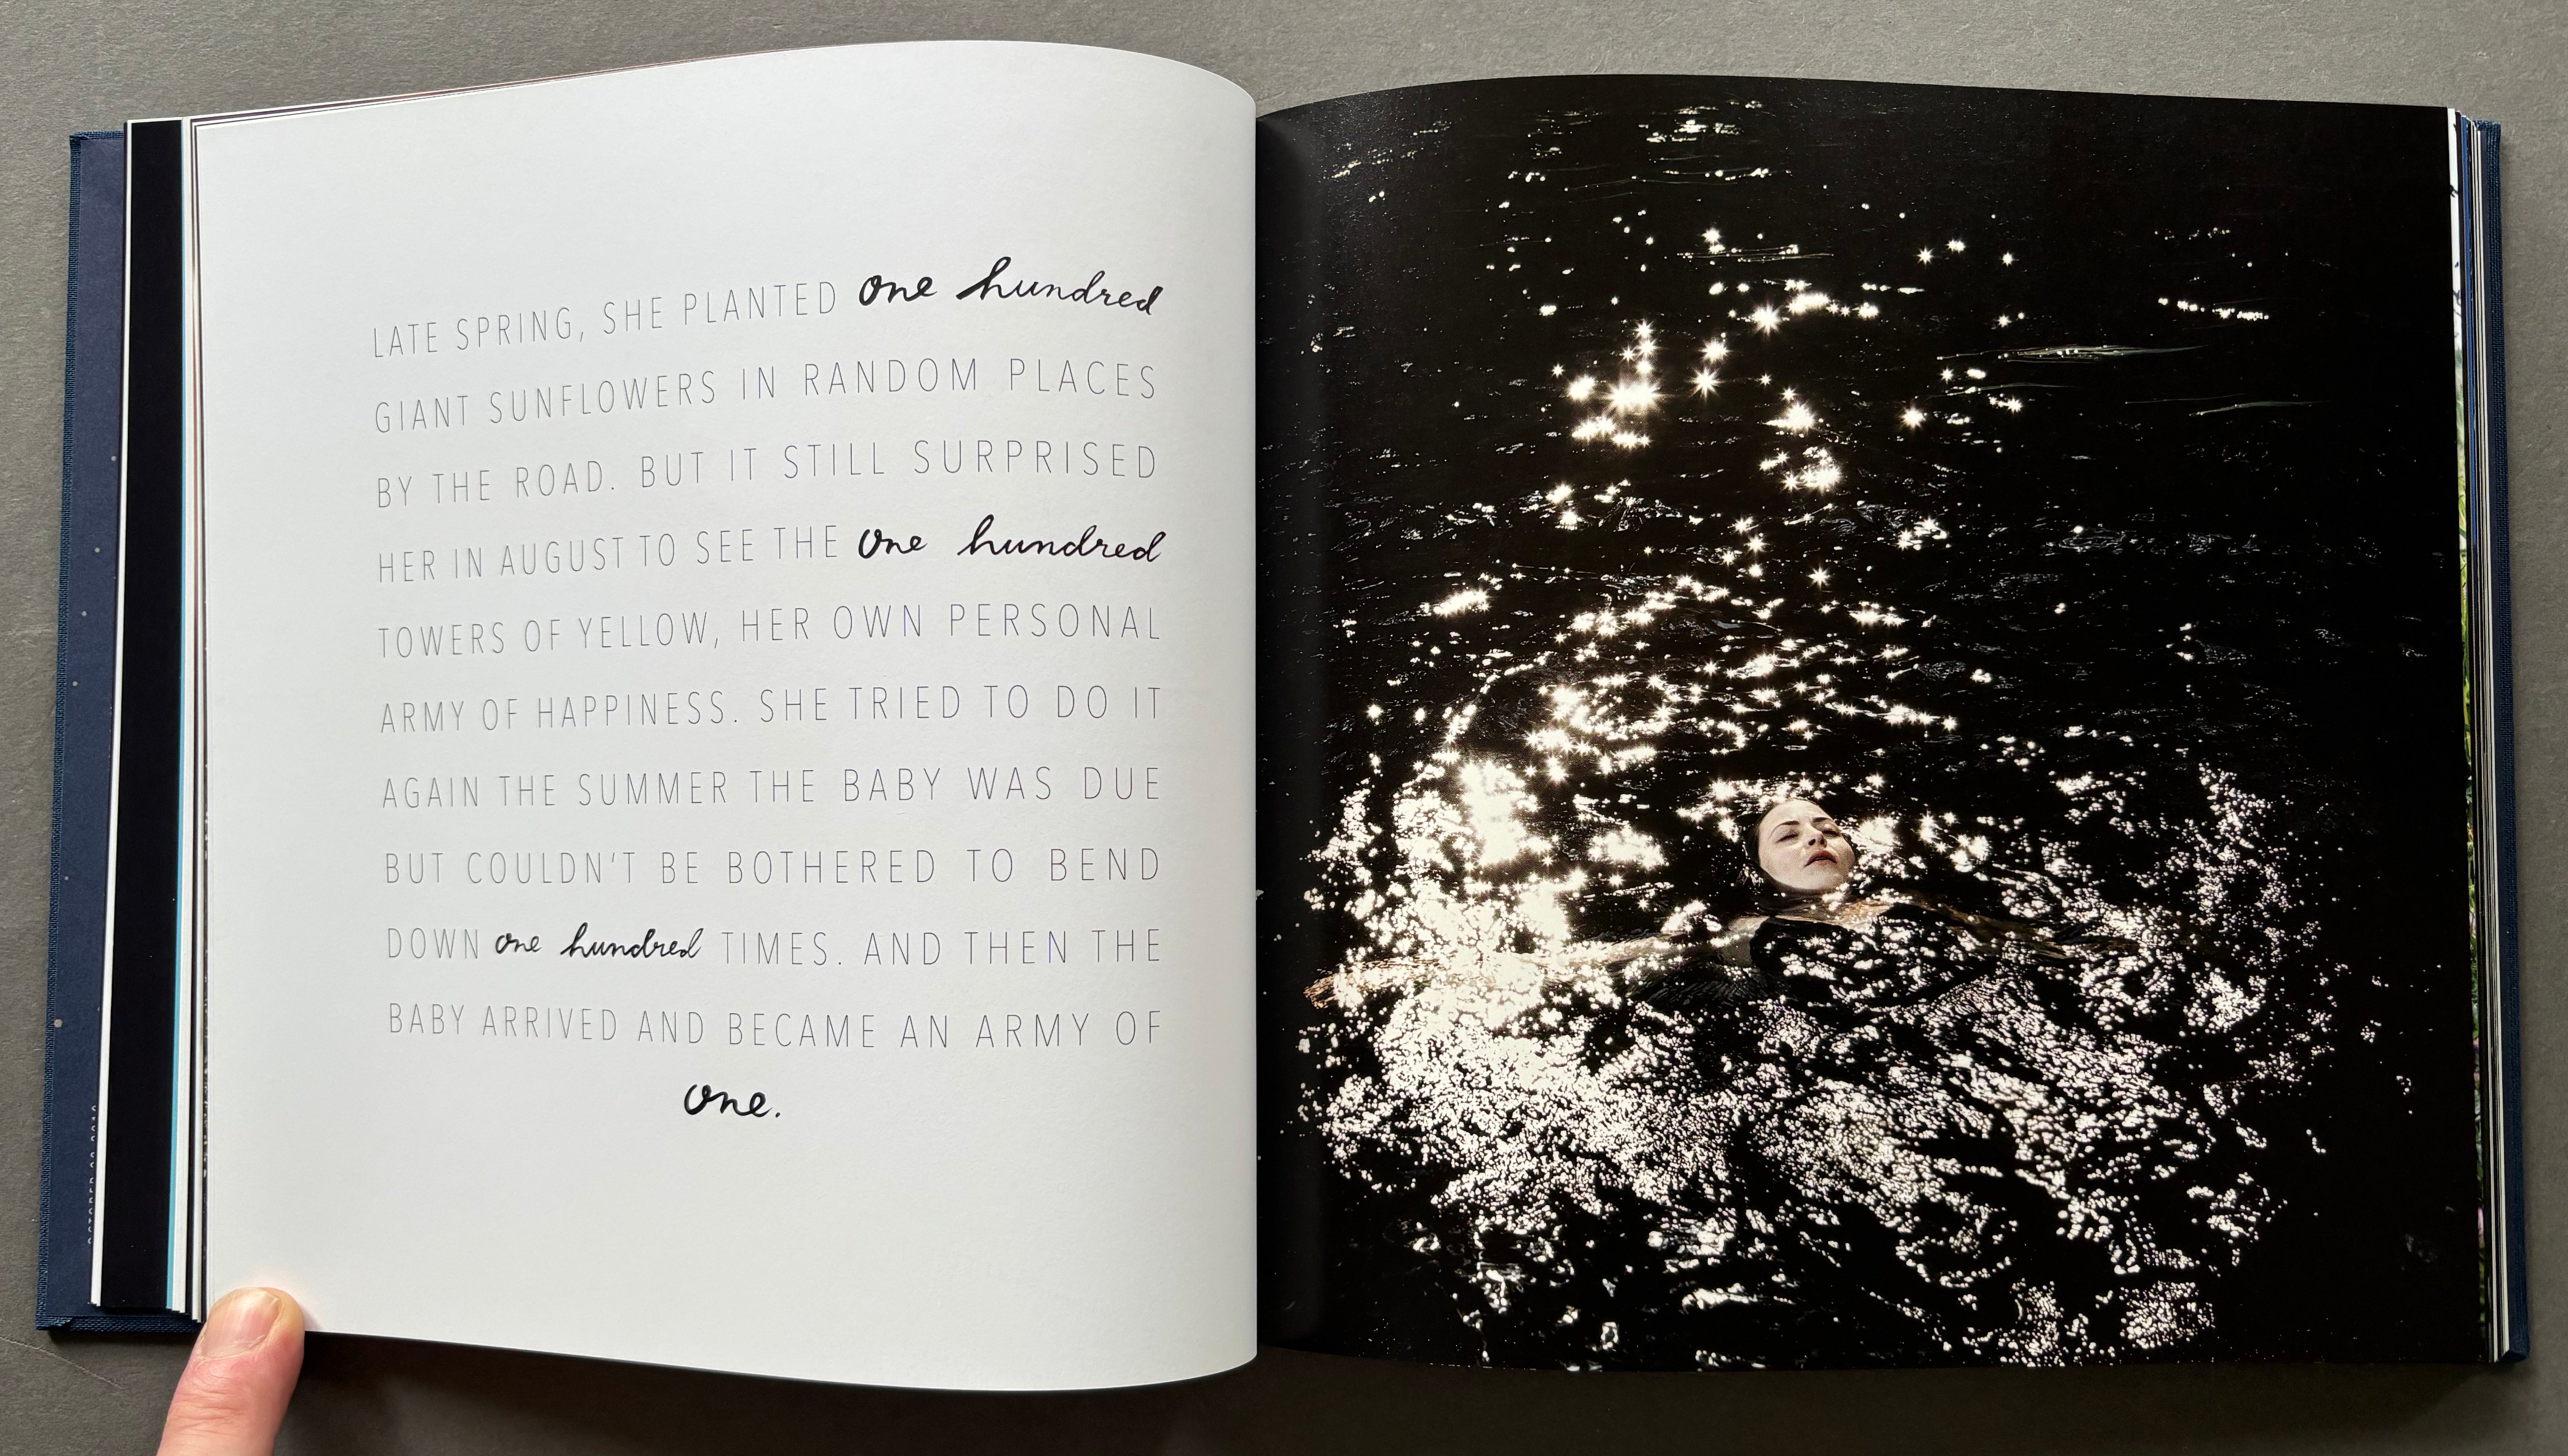 LATE SPRING, SHE PLANTED one hundred
GIANT SUNFLOWERS IN RANDOM PLACES
BY THE ROAD. BUT IT STILL SURPRISED
HER IN AUGUST TO SEE THE one hundred
TOWERS OF YELLOW, HER OWN PERSONAL
ARMY OF HAPPINESS. SHE TRIED TO DO IT
AGAIN THE SUMMER THE BABY WAS DUE
BUT COULDN'T BE BOTHERED TO BEND
DOWN one hundred TIMES. AND THEN THE
BABY ARRIVED AND BECAME AN ARMY OF
one.